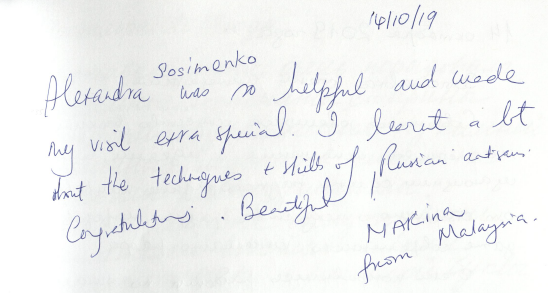 14/10/19
Sosimenko
Alexandra was so helpful and made
my visit extra special. I learnt a lot
about the techniques + skills of Russian artisans.
Congratulations. Beautiful!
MAKina
from Malaysia.